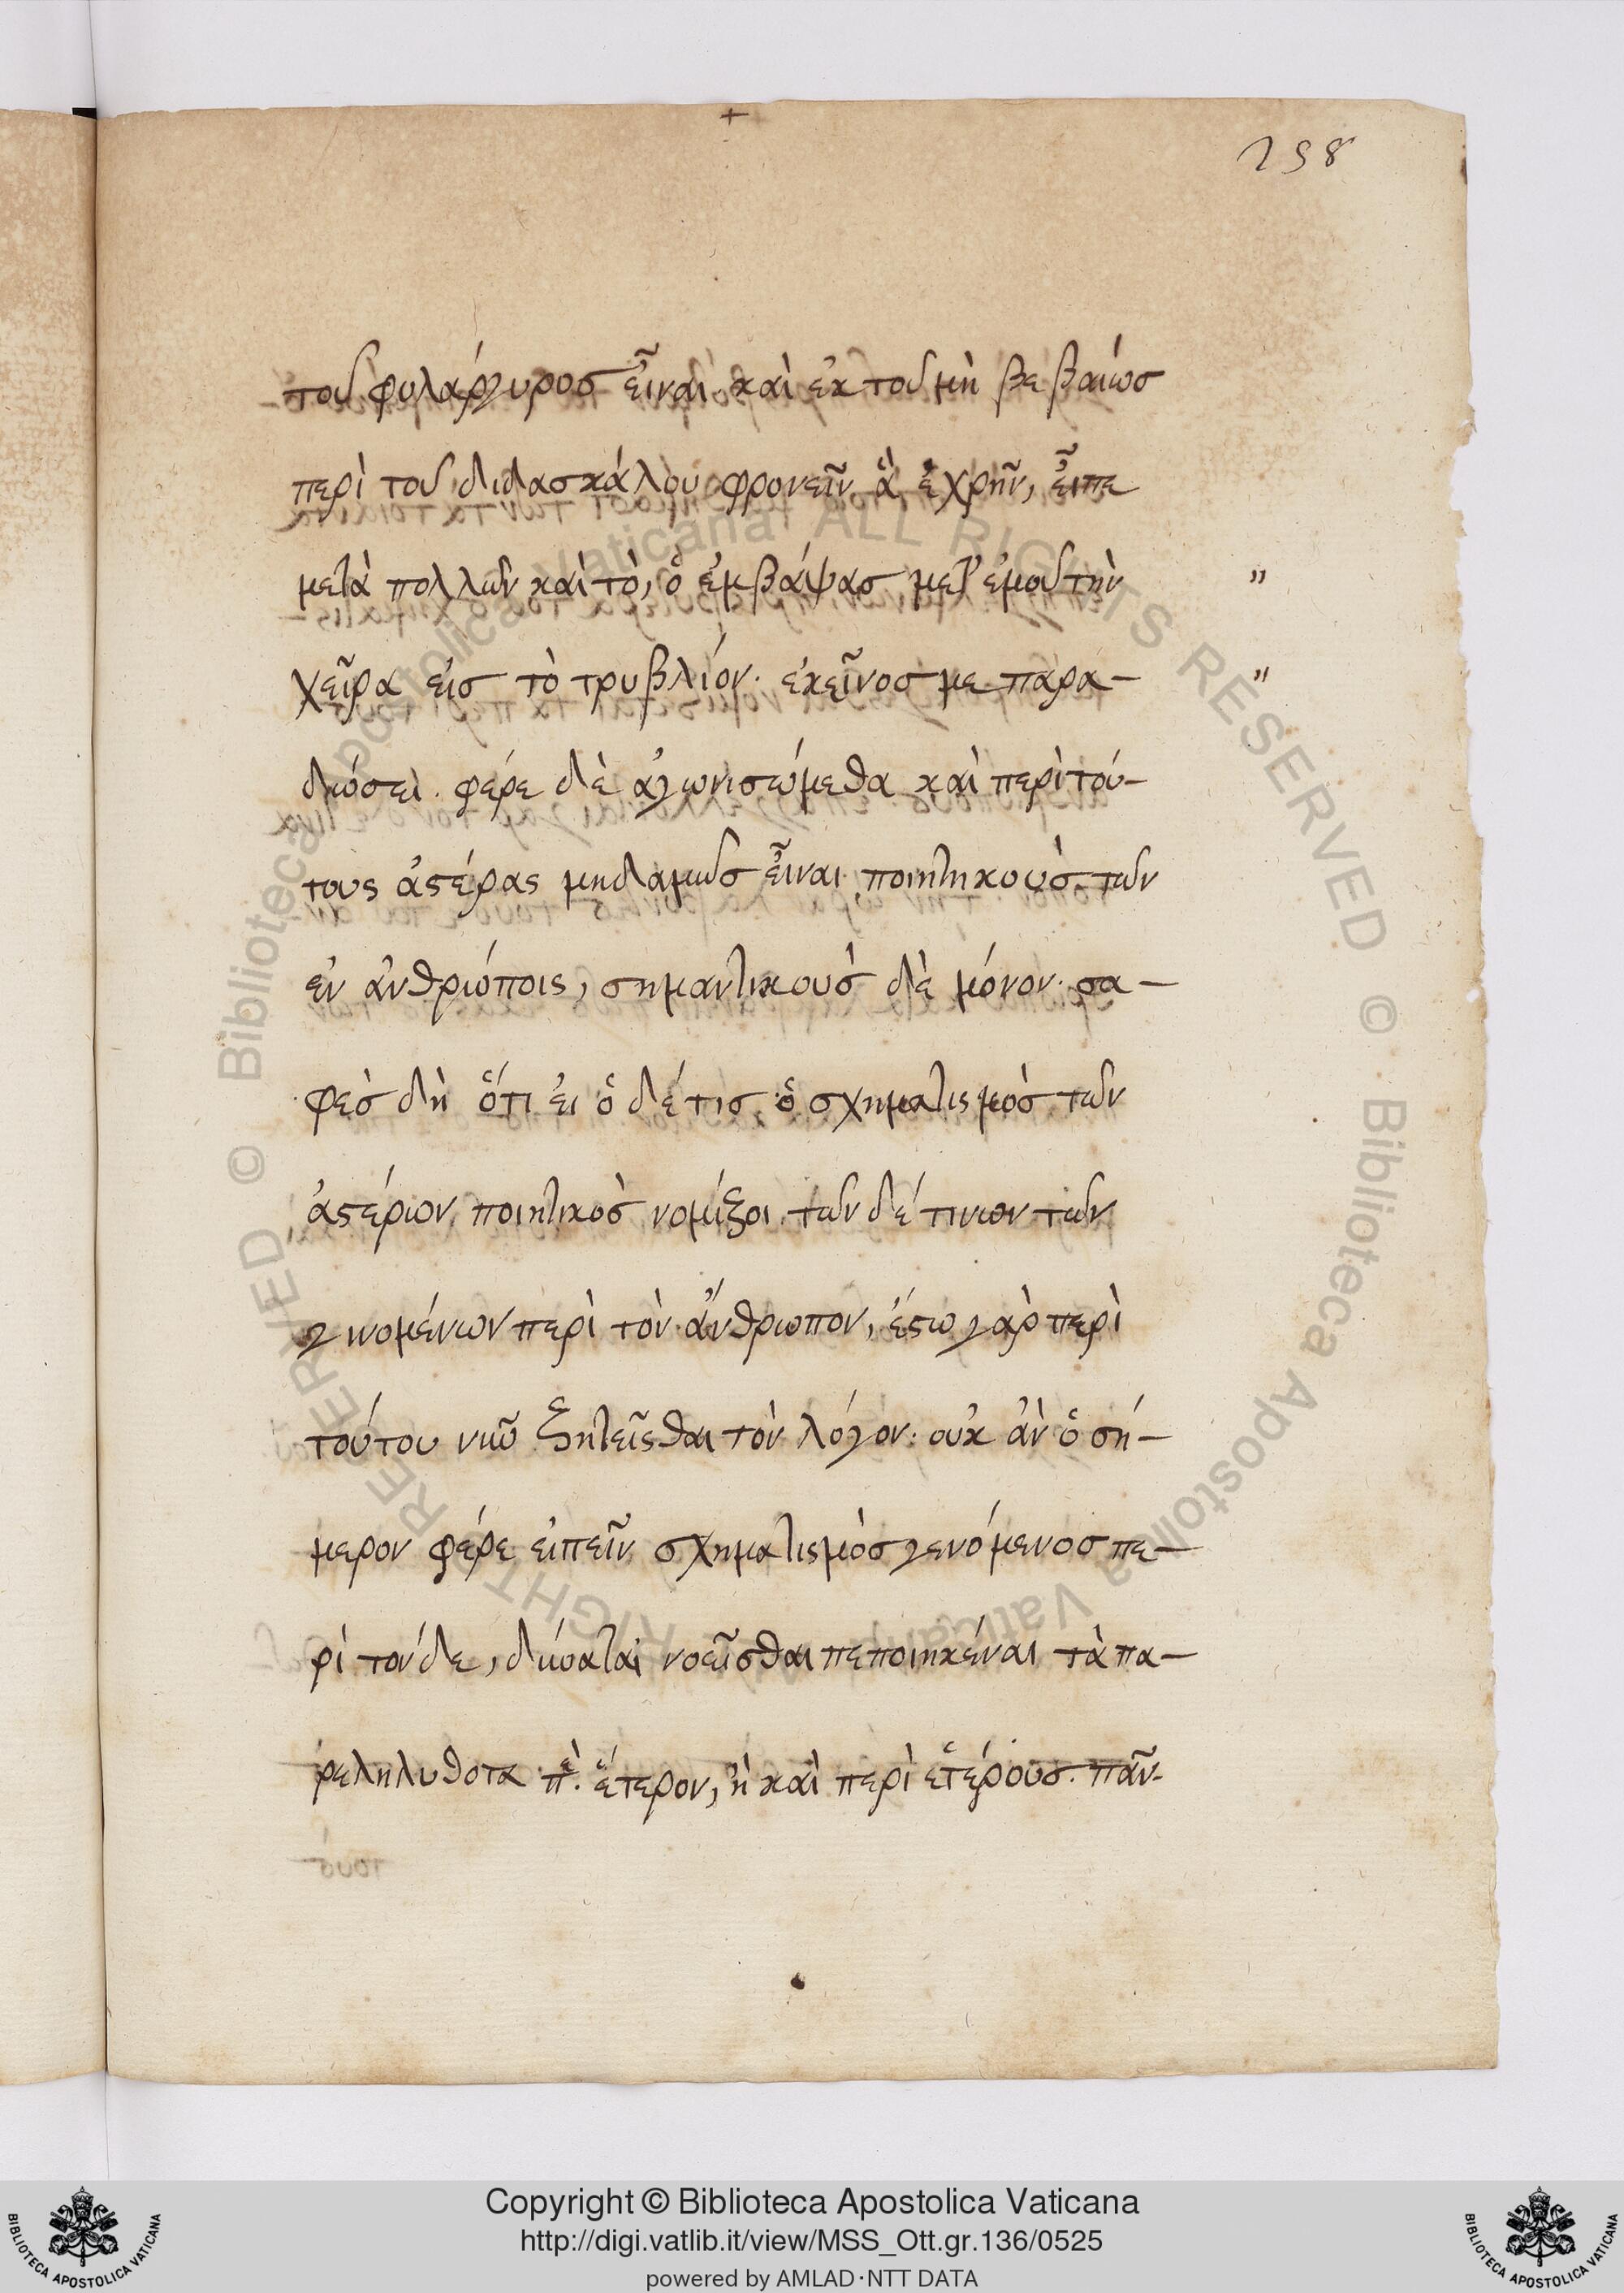 258
τοῦ φυλάργυροσ εἶναι καὶ ἐκ τοῦ μὴ βεβαίωσ
περὶ τοῦ διδασκάλου φρονεῖν ἃ ἐχρῆν, εἶπε
μετὰ πολλῶν καὶ τὸ, ὁ ἐμβάψασ μετ' ἐμοῦ τὴν "
χεῖρα εἰσ τὸ τρυβλίον· ἐκεῖνοσ με παρα- "
δώσει. φέρε δὲ ἀγωνισώμεθα καὶ περὶ τού-
τους ἀστέρας μηδαμῶσ εἶναι ποιητικοὺσ τῶν
ἐν ἀνθρώποις, σημαντικοὺσ δὲ μόνον· σα-
φὲσ δὴ ὅτι εἰ ὁ δέ τισ ὁ σχηματισμὸσ τῶν
ἀστέρων ποιητικὸσ νομίζοι τῶν δέ τινων τῶν
γινομένων περὶ τὸν ἄνθρωπον, ἔστω γὰρ περὶ
τούτου νῦν ζητεῖσθαι τὸν λόγον· οὐκ ἂν ὁ σή-
μερον φέρε εἰπεῖν σχηματισμὸσ γενόμενοσ πε-
ρὶ τοῦδε, δύναται νοεῖσθαι πεποιηκέναι τὰ πα-
ρεληλυθοτα π. ἕτερον, ἢ καὶ περὶ ἑτέρουσ. πᾶν-
Copyright © Biblioteca Apostolica Vaticana
http://digi.vatlib.it/view/MSS_Ott.gr.136/0525
powered by AMLAD·NTT DATA
BIBLIOTECA APOSTOLICA VATICANA
BIBLIOTECA APOSTOLICA VATICANA